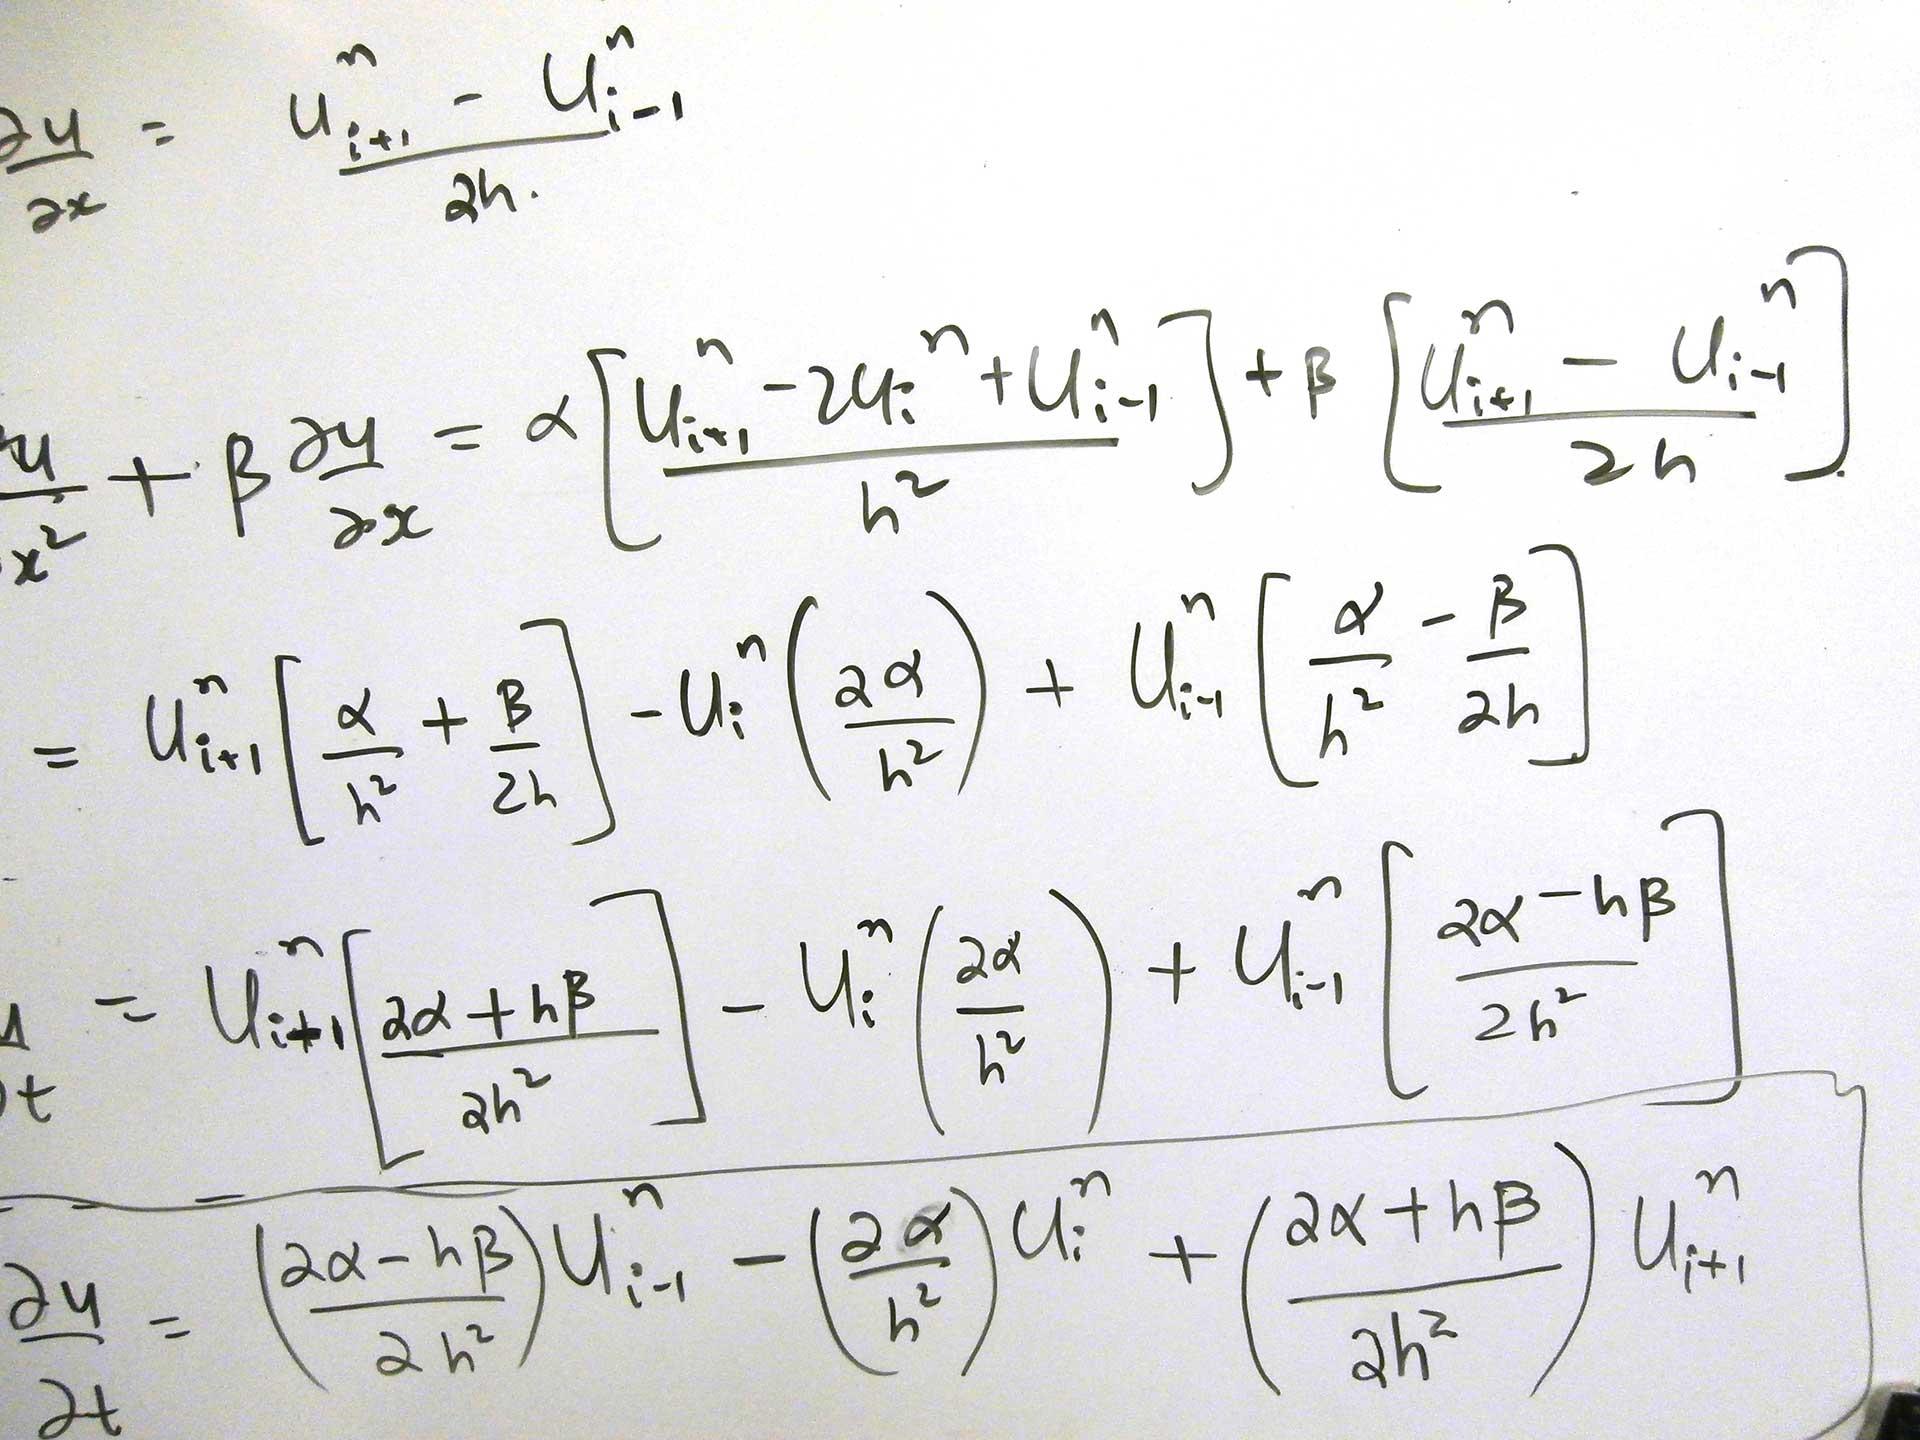 ∂u/∂x = (u_{i+1}^n - u_{i-1}^n)/2h.
u/x^2 + β ∂u/∂x = α [(u_{i+1}^n - 2u_i^n + u_{i-1}^n)/h^2] + β [(u_{i+1}^n - u_{i-1}^n)/2h]
= u_{i+1}^n [α/h^2 + β/2h] - u_i^n (2α/h^2) + u_{i-1}^n [α/h^2 - β/2h]
u/∂t = u_{i+1}^n [(2α + hβ)/2h^2] - u_i^n (2α/h^2) + u_{i-1}^n [(2α - hβ)/2h^2]
∂u/∂t = ((2α - hβ)/2h^2) u_{i-1}^n - (2α/h^2) u_i^n + ((2α + hβ)/2h^2) u_{i+1}^n